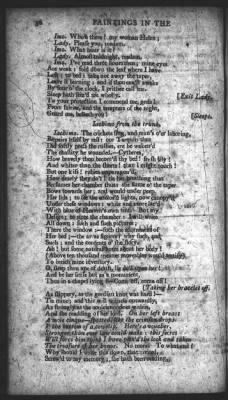 PAINTINGS IN THE
Imo. Who's there? my woman Helen?
Lady. Please you, madam.
Imo. What hour is it?
Lady. Almost midnight, madam.
Imo. I've read three hours then; mine eyes
Are weak: fold down the leaf where I have
Left: to bed: take not away the taper,
Leave it burning: and if thou canst awake
By four o' the clock, I prithee call me.
Sleep hath seiz'd me wholly. [Exit Lady.
To your protection I commend me, gods!
From fairies, and the tempters of the night,
Guard me, beseech you! [Sleeps.
Iachimo from the trunk.
Iachimo. The crickets sing, and man's o'er-labouring
Repairs itself by rest: our Tarquin thus
Did softly press the rushes, ere he waken'd
The chastity he wounded.—Cytherea,
How bravely thou becom'st thy bed! fresh lily!
And whiter than the sheets! that I might touch!
But one kiss! rubies unparagon'd,
How dearly they do't! 'tis her breathing that
Perfumes her chamber thus: the flame o' the taper
Bows towards her; and would under-peep
Her lids; to see the
Under these windows: white and azure
With blue of heaven's own tinct—But my
To note the chamber: I will write
All down: such and such pictures;
There the window:—such the adornment of
Her bed;—the arras figures? why such, and
Such; and the contents o' the story.
Ah! but some natural notes about her body!
(Above ten thousand meaner moveables would testify)
To enrich mine inventory.
O, sleep thou ape of death, lie dull upon her!
And be her sense but as a monument,
Thus in a chapel lying!—Come off, come off!
[Taking her bracelet off.
As slippery, as the gordian knot was hard!—
'Tis mine; and this will witness outwardly,
As strongly as the conscience does within,
And the madding of her lord. On her left breast
A mole cinque-spotted, like the crimson drops
I' the bottom of a cowslip. Here's a voucher,
Stronger than ever law could make: this secret
Will force him think I have pick'd the lock and taken
The treasure of her honor. No more: To what end?
Why should I write this down, that's
Screw'd to my memory; she hath been reading,